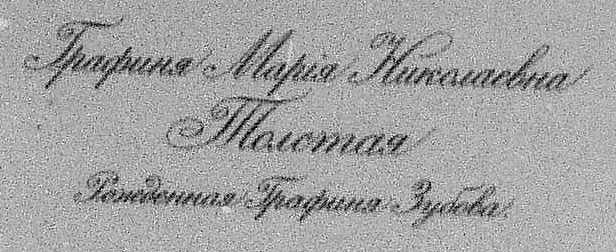 Графиня Марія Николаевна
Толстая
Рожденная Графиня Зубова.